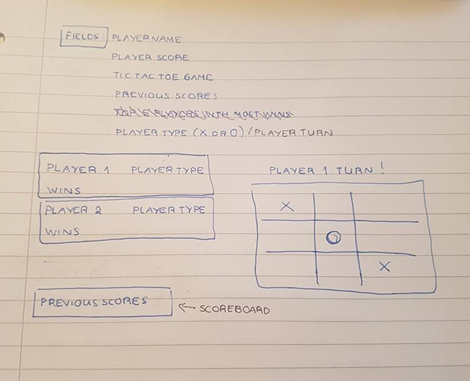 FIELDS PLAYER NAME
PLAYER SCORE
TIC TAC TOE GAME
PREVIOUS SCORES
PLAYER TYPE (X OR O) / PLAYER TURN
PLAYER 1 PLAYER TYPE
WINS
PLAYER 2 PLAYER TYPE
WINS
PLAYER 1 TURN!
X
O
X
PREVIOUS SCORES ← SCOREBOARD